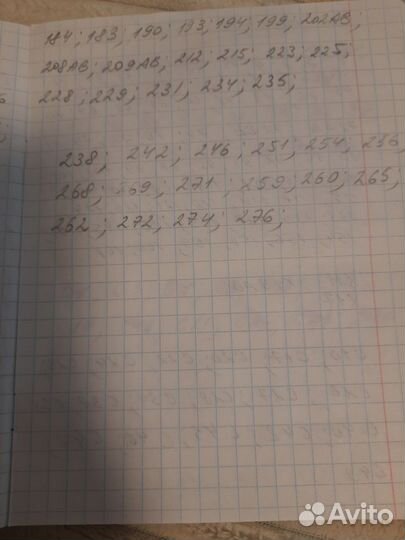 184; 183; 190; 193; 194; 199; 202АВ;
208АВ; 209АВ, 212; 215; 223; 225;
228; 229; 231; 234; 235;
238; 242; 246; 251; 254; 256,
268; 269; 271; 259; 260; 265;
262; 272; 274; 276;
Avito